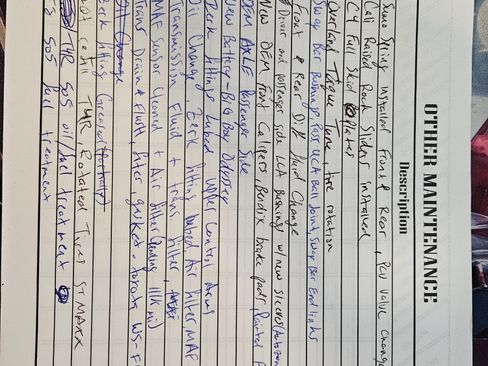 OTHER MAINTENANCE
Description
Spring Installed Front & Rear, PCV valve change
Cali Raised Rock Sliders installed
C4 Full Skid Plates
Overland Tune, tire rotation
Sway Bar Bushings, LCA Ball Joint, Sway Bar End links
Front & Rear Diff fluid Change
Driver and passenger side LCA Bushings w/ new sleeves
New OEM front Calipers, Bendix brake pads, Painted
OEM AXLE Passenger Side
New Battery - Big Boy Odyssey
Zerk fittings Lubed upper Control Arms
Oil Change, Zerk fitting lubed Air filter MAF
Transmission Fluid + trans filter,
MAF Sensor Cleaned + Air filter
Trans Drain & Flush, filter, gasket - toyota WS-
Oil Change
Zerk fitting Greased
T4R, Rotated Tires STMAXX
T4R SOS oil/fuel treatment
SOS fuel treatment